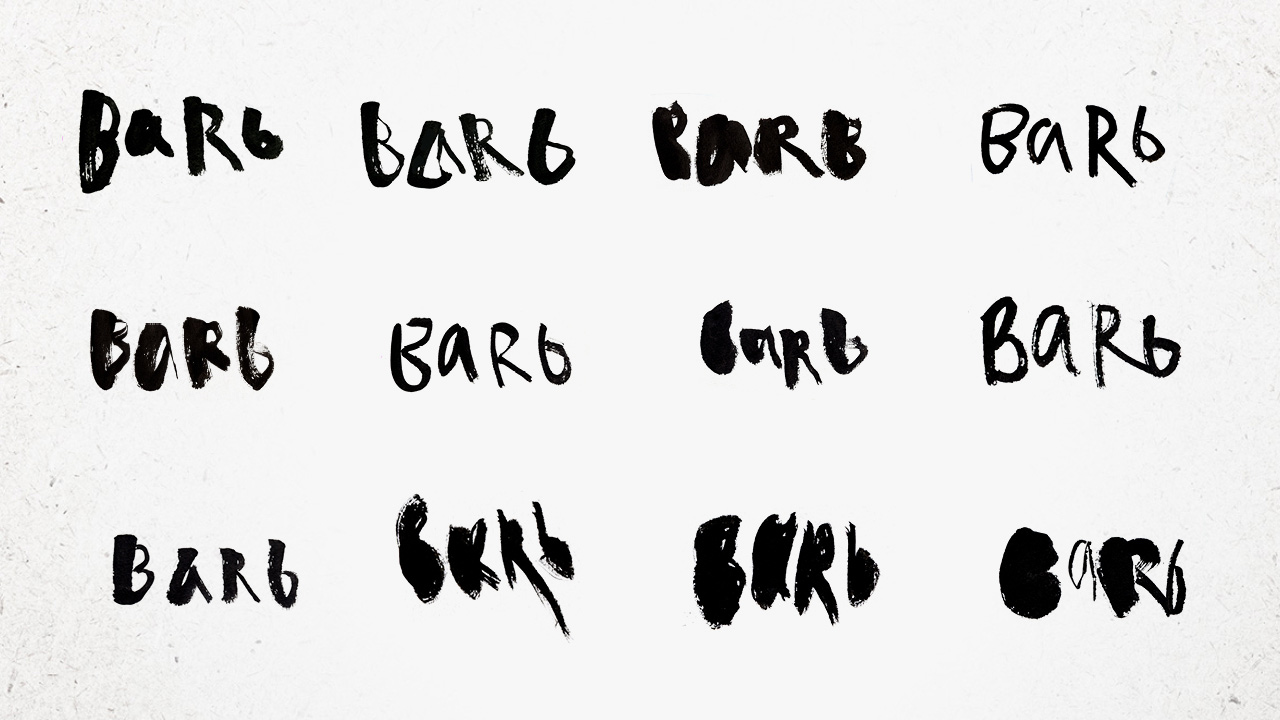 BaRb BaRb BaRB BaRb
BaRb BaRb BaRb BaRb
BaRb BaRb BaRb BaRb